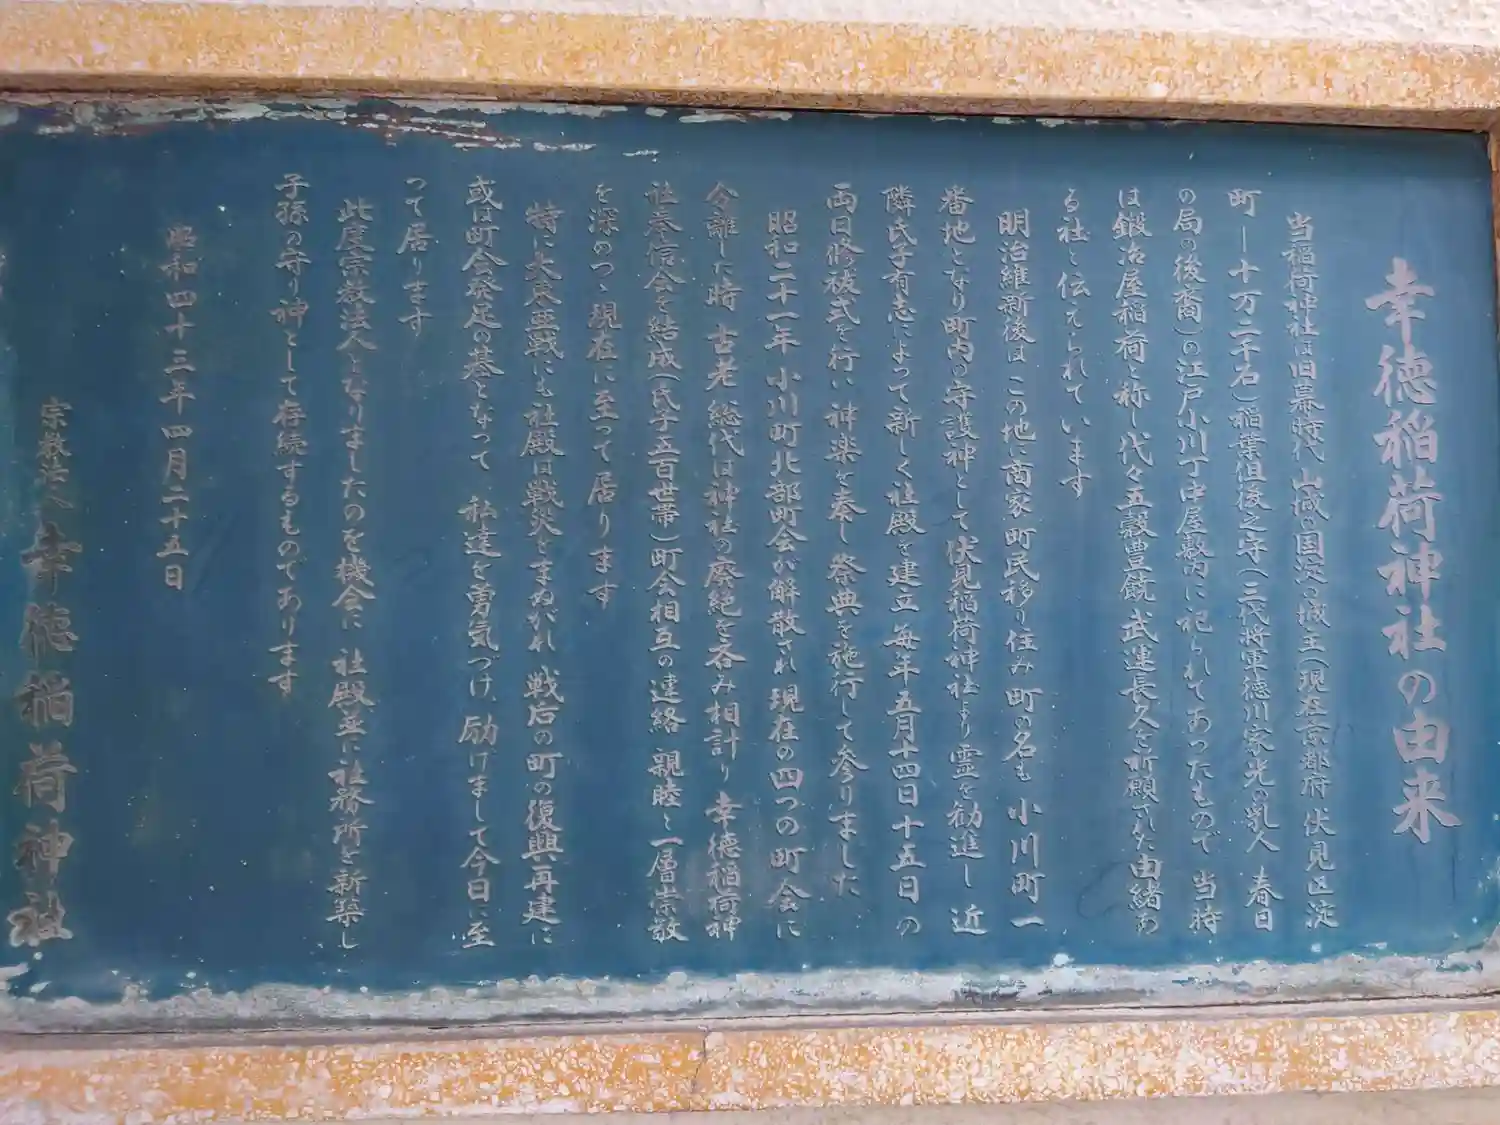 幸徳稲荷神社の由来
当稲荷神社は旧幕時代 山城の国淀の城主(現在京都府伏見区淀
町―十万二千石)稲葉但後之守(三代将軍徳川家光の乳人 春日
の局の後裔)の江戸小川丁中屋敷内に祀られてあつたもので 当時
は鍛冶屋稲荷と称し代々五穀豊饒 武運長久を祈願された由緒あ
る社と伝えられています
明治維新後は この地に商家町民移り住み 町の名も 小川町一
番地となり町内の守護神として伏見稲荷神社より霊を勧進し 近
隣氏子有志によつて新しく社殿を建立 毎年五月十四日十五日の
両日修祓式を行い 神楽を奉し 祭典を施行して参りました
昭和二十一年 小川町北部町会が解散され 現在の四つの町会に
分離した時 古老 総代は神社の廃絶を呑み相計り 幸徳稲荷神
社奉信会を結成(氏子五百世帯)町会相互の連絡 親睦と一層崇敬
を深めつゝ現在に至つて居ります
特に大東亜戦にも社殿は戦災をまぬがれ 戦后の町の復興再建に
或は町会発足の基となつて 私達を勇気づけ 励けまして今日に至
つて居ります
此度宗教法人となりましたのを機会に 社殿並に社務所を新築し
子孫の守り神として存続するものであります
昭和四十三年四月二十五日
宗教法人 幸徳稲荷神社